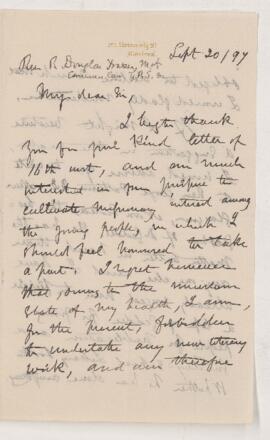 University St
Montreal
Sept 20/97
Rev R. Douglas Fraser, M.A
My dear Sir,
I beg to thank
you for your kind letter of
16th inst, and am much
interested in your purpose to
cultivate missionary interest among
the young people, in which I
should feel honoured to take
a part. I regret however
that, owing to the uncertain
state of my health, I am,
for the present, forbidden
to undertake any new literary
work, and am therefore